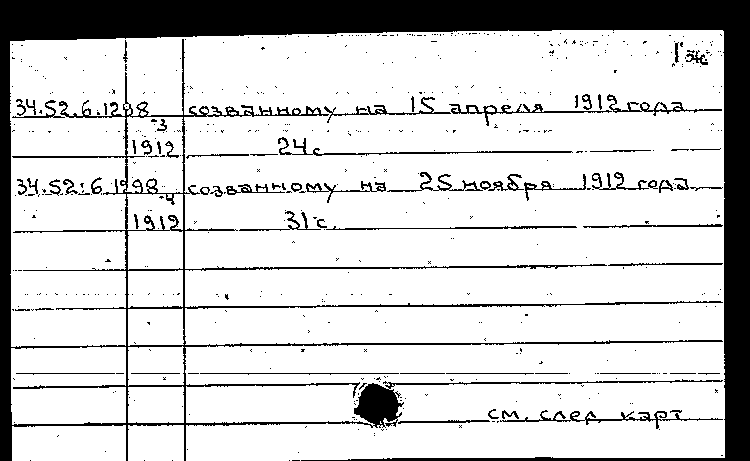 34.52.6.1298 созванному на 15 апреля 1912 года
-3
1912 24с
34.52:6.1298 созванному на 25 ноября 1912 года
-4
1912 31с.
см. след. карт